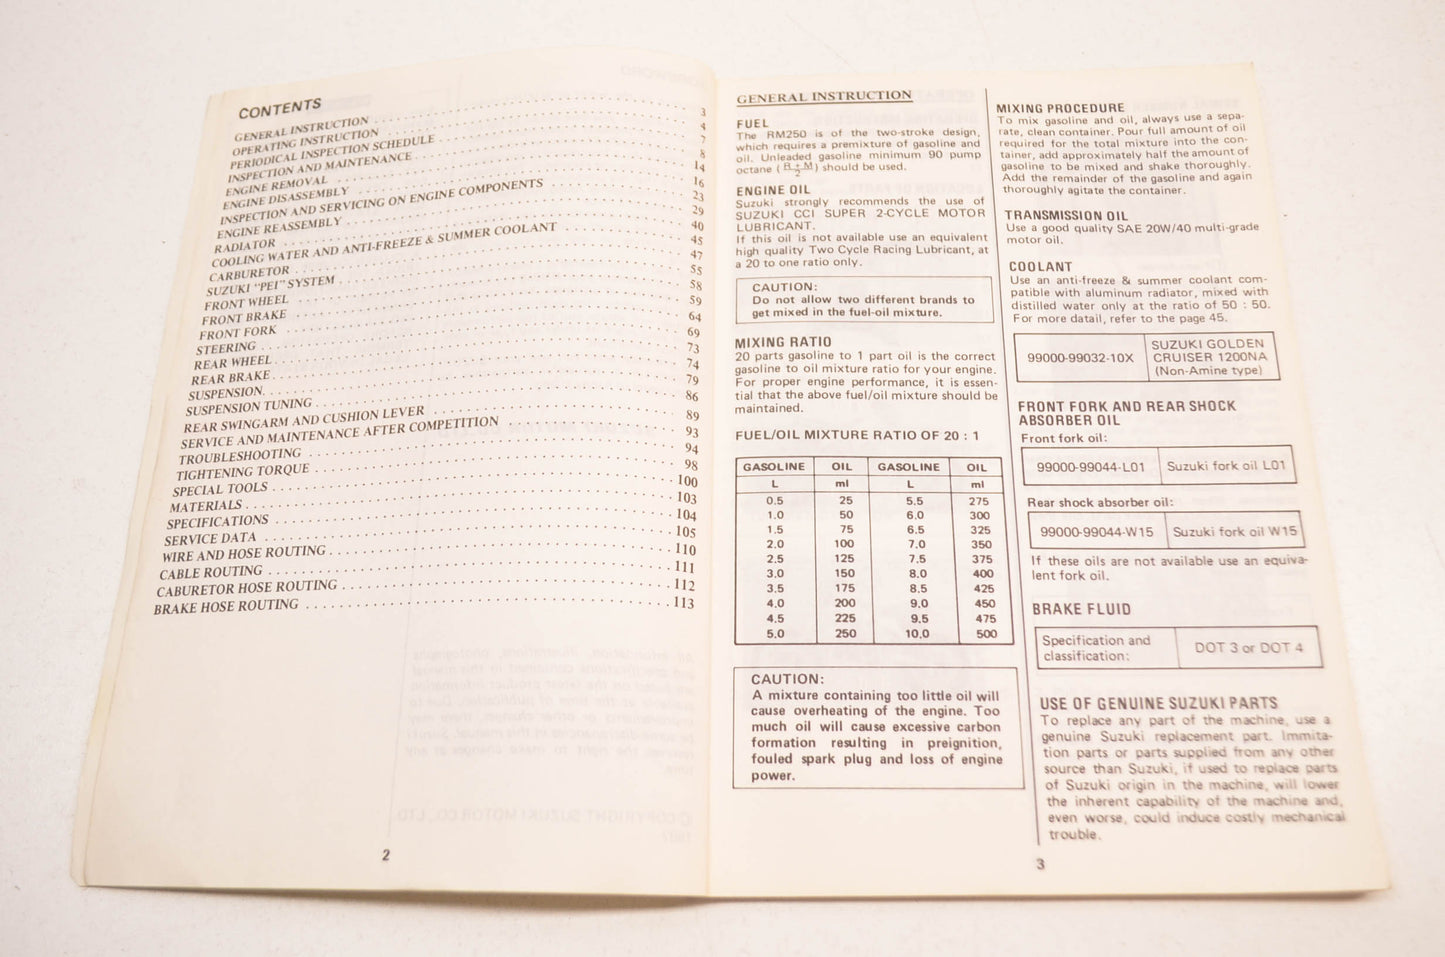 CONTENTS
GENERAL INSTRUCTION 3
OPERATING INSTRUCTION 4
PERIODICAL INSPECTION SCHEDULE 7
INSPECTION AND MAINTENANCE 8
ENGINE REMOVAL 14
ENGINE DISASSEMBLY 16
INSPECTION AND SERVICING ON ENGINE COMPONENTS 23
ENGINE REASSEMBLY 29
RADIATOR 40
COOLING WATER AND ANTI-FREEZE & SUMMER COOLANT 45
CARBURETOR 47
SUZUKI "PEI" SYSTEM 55
FRONT WHEEL 58
FRONT BRAKE 59
FRONT FORK 64
STEERING 69
REAR WHEEL 73
REAR BRAKE 74
SUSPENSION 79
SUSPENSION TUNING 86
REAR SWINGARM AND CUSHION LEVER 89
SERVICE AND MAINTENANCE AFTER COMPETITION 93
TROUBLESHOOTING 94
TIGHTENING TORQUE 98
SPECIAL TOOLS 100
MATERIALS 103
SPECIFICATIONS 104
SERVICE DATA 105
WIRE AND HOSE ROUTING 110
CABLE ROUTING 111
CABURETOR HOSE ROUTING 112
BRAKE HOSE ROUTING 113
2
GENERAL INSTRUCTION
FUEL
The RM250 is of the two-stroke design,
which requires a premixture of gasoline and
oil. Unleaded gasoline minimum 90 pump
octane (R + M / 2) should be used.
ENGINE OIL
Suzuki strongly recommends the use of
SUZUKI CCI SUPER 2-CYCLE MOTOR
LUBRICANT.
If this oil is not available use an equivalent
high quality Two Cycle Racing Lubricant, at
a 20 to one ratio only.
CAUTION:
Do not allow two different brands to
get mixed in the fuel-oil mixture.
MIXING RATIO
20 parts gasoline to 1 part oil is the correct
gasoline to oil mixture ratio for your engine.
For proper engine performance, it is essen-
tial that the above fuel/oil mixture should be
maintained.
FUEL/OIL MIXTURE RATIO OF 20 : 1
GASOLINE OIL GASOLINE OIL
L ml L ml
0.5 25 5.5 275
1.0 50 6.0 300
1.5 75 6.5 325
2.0 100 7.0 350
2.5 125 7.5 375
3.0 150 8.0 400
3.5 175 8.5 425
4.0 200 9.0 450
4.5 225 9.5 475
5.0 250 10.0 500
CAUTION:
A mixture containing too little oil will
cause overheating of the engine. Too
much oil will cause excessive carbon
formation resulting in preignition,
fouled spark plug and loss of engine
power.
MIXING PROCEDURE
To mix gasoline and oil, always use a sepa-
rate, clean container. Pour full amount of oil
required for the total mixture into the con-
tainer, add approximately half the amount of
gasoline to be mixed and shake thoroughly.
Add the remainder of the gasoline and again
thoroughly agitate the container.
TRANSMISSION OIL
Use a good quality SAE 20W/40 multi-grade
motor oil.
COOLANT
Use an anti-freeze & summer coolant com-
patible with aluminum radiator, mixed with
distilled water only at the ratio of 50 : 50.
For more datail, refer to the page 45.
99000-99032-10X SUZUKI GOLDEN
CRUISER 1200NA
(Non-Amine type)
FRONT FORK AND REAR SHOCK
ABSORBER OIL
Front fork oil:
99000-99044-L01 Suzuki fork oil L01
Rear shock absorber oil:
99000-99044-W15 Suzuki fork oil W15
If these oils are not available use an equiva-
lent fork oil.
BRAKE FLUID
Specification and
classification: DOT 3 or DOT 4
USE OF GENUINE SUZUKI PARTS
To replace any part of the machine, use a
genuine Suzuki replacement part. Immita-
tion parts or parts supplied from any other
source than Suzuki, if used to replace parts
of Suzuki origin in the machine, will lower
the inherent capability of the machine and,
even worse, could induce costly mechanical
trouble.
3